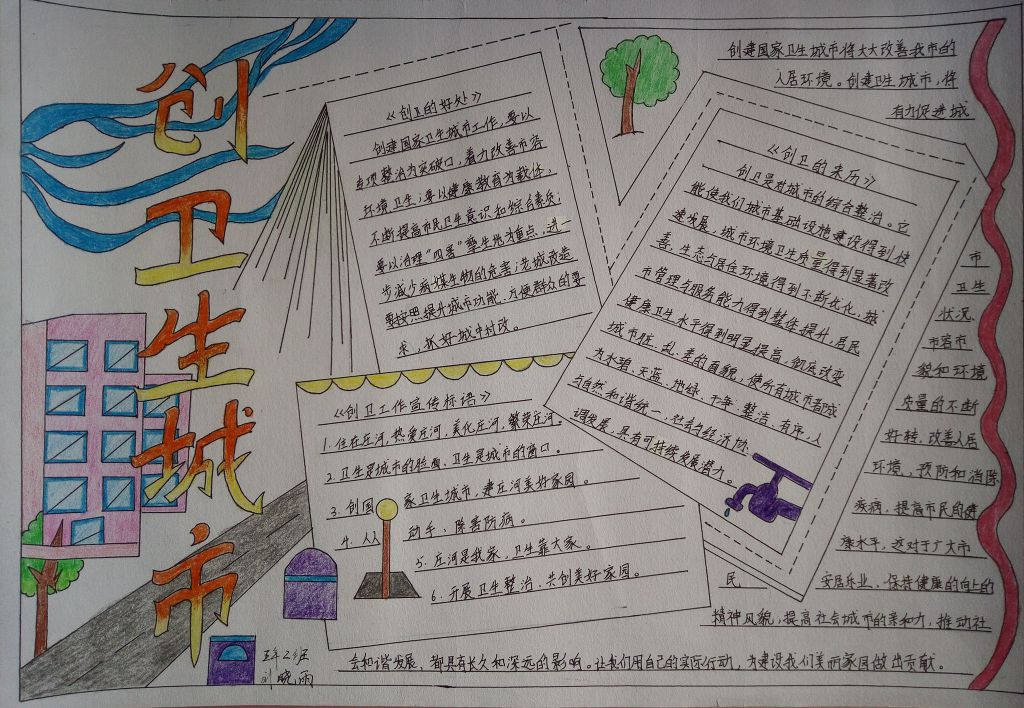 创卫生城市
《创卫的好处》
创建国家卫生城市工作，要以
专项整治为突破口，着力改善市容
环境卫生；要以健康教育为载体，
不断提高市民卫生意识和综合素质；
要以治理“四害”孳生地为重点，进一
步减少病媒生物的危害；老城改造
要按照提升城市功能、方便群众的要
求，抓好城中村改。
《创卫工作宣传标语》
1、住在庄河，热爱庄河，美化庄河，繁荣庄河。
2、卫生是城市的脸面，卫生是城市的窗口。
3、创国家卫生城市，建庄河美好家园。
4、人人动手、除害防病。
5、庄河是我家，卫生靠大家。
6、开展卫生整治、共创美好家园。
《创卫的来历》
创卫是对城市的综合整治。它
能使我们城市基础设施建设得到快
速发展，城市环境卫生质量得到显著改
善，生态与居住环境得到不断优化，城
市管理与服务能力得到整体提升，居民
健康卫生水平得到明显提高，彻底改变
城市脏、乱、差的面貌，使所有城市都成
为水碧、天蓝、地绿、干净、整洁、有序，人
与自然和谐统一，社会与经济协
调发展，具有可持续发展潜力。
创建国家卫生城市将大大改善我市的
人居环境。创建卫生城市，将
有力促进城
市
卫生
状况、
市容市
貌和环境
质量的不断
好转，改善人居
环境，预防和消除
疾病，提高市民的健
康水平，这对于广大市
民安居乐业，保持健康的向上的
精神风貌，提高社会城市的亲和力，推动社
会和谐发展，都具有长久和深远的影响。让我们用自己的实际行动，为建设我们美丽家园做出贡献。
五年2班
刘晓雨